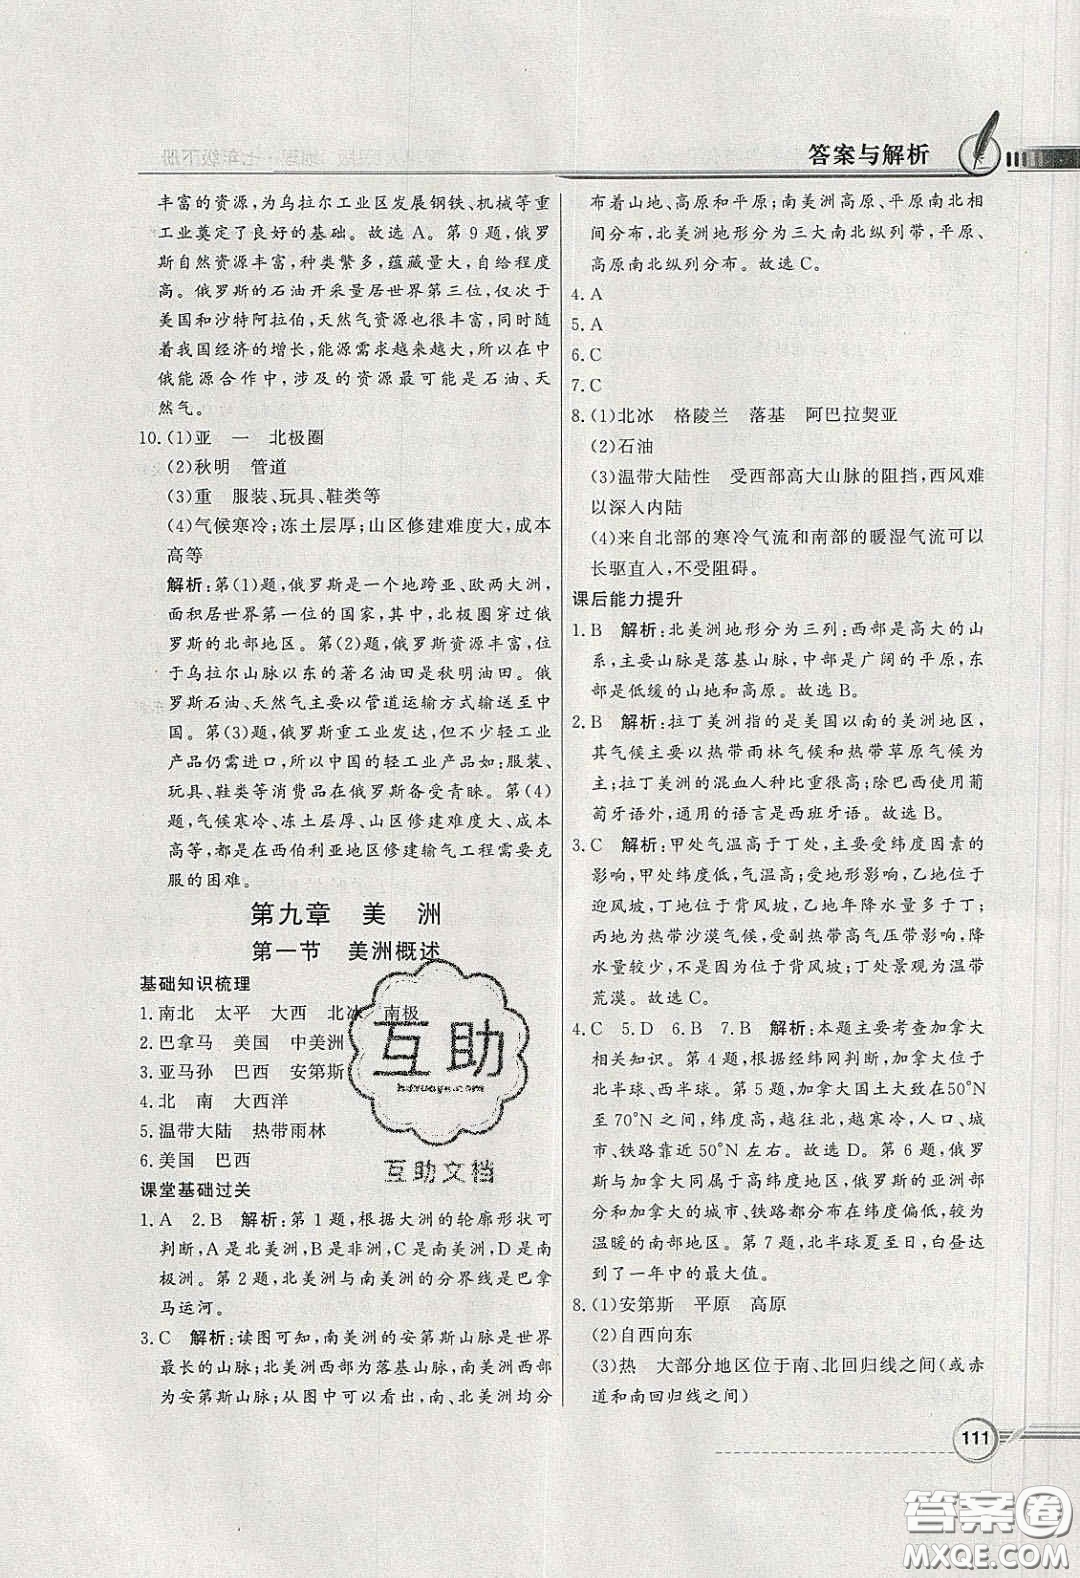 答案与解析
丰富的资源,为乌拉尔工业区发展钢铁、机械等重
工业奠定了良好的基础。故选 A。第 9 题,俄罗
斯自然资源丰富,种类繁多,蕴藏量大,自给程度
高。俄罗斯的石油开采量居世界第三位,仅次于
美国和沙特阿拉伯,天然气资源也很丰富,同时随
着我国经济的增长,能源需求越来越大,所以在中
俄能源合作中,涉及的资源最可能是石油、天
然气。
10. (1)亚 一 北极圈
(2)秋明 管道
(3)重 服装、玩具、鞋类等
(4)气候寒冷;冻土层厚;山区修建难度大,成本
高等
解析:第(1)题,俄罗斯是一个地跨亚、欧两大洲,
面积居世界第一位的国家,其中,北极圈穿过俄
罗斯的北部地区。第(2)题,俄罗斯资源丰富,位
于乌拉尔山脉以东的著名油田是秋明油田。俄
罗斯石油、天然气主要以管道运输方式输送至中
国。第(3)题,俄罗斯重工业发达,但不少轻工业
产品仍需进口,所以中国的轻工业产品如:服装、
玩具、鞋类等消费品在俄罗斯备受青睐。第(4)
题,气候寒冷、冻土层厚、山区修建难度大、成本
高等,都是在西伯利亚地区修建输气工程需要克
服的困难。
第九章 美 洲
第一节 美洲概述
基础知识梳理
1. 南北 太平 大西 北冰 南极
2. 巴拿马 美国 中美洲
3. 亚马孙 巴西 安第斯
4. 北 南 大西洋
5. 温带大陆 热带雨林
6. 美国 巴西
课堂基础过关
1. A 2. B 解析:第 1 题,根据大洲的轮廓形状可
判断,A 是北美洲,B 是非洲,C 是南美洲,D 是南
极洲。第 2 题,北美洲与南美洲的分界线是巴拿
马运河。
3. C 解析:读图可知,南美洲的安第斯山脉是世界
最长的山脉;北美洲西部为落基山脉,南美洲西部
为安第斯山脉;从图中可以看出,南、北美洲均分
布着山地、高原和平原;南美洲高原、平原南北相
间分布,北美洲地形分为三大南北纵列带,平原、
高原南北纵列分布。故选 C。
4. A
5. A
6. C
7. C
8. (1)北冰 格陵兰 落基 阿巴拉契亚
(2)石油
(3)温带大陆性 受西部高大山脉的阻挡,西风难
以深入内陆
(4)来自北部的寒冷气流和南部的暖湿气流可以
长驱直入,不受阻碍。
课后能力提升
1. B 解析:北美洲地形分为三列:西部是高大的山
系,主要山脉是落基山脉,中部是广阔的平原,东
部是低缓的山地和高原。故选 B。
2. B 解析:拉丁美洲指的是美国以南的美洲地区,
其气候主要以热带雨林气候和热带草原气候为
主;拉丁美洲的混血人种比重很高;除巴西使用葡
萄牙语外,通用的语言是西班牙语。故选 B。
3. C 解析:甲处气温高于丁处,主要受纬度因素的
影响,甲处纬度低,气温高;受地形影响,乙地位于
迎风坡,丁地位于背风坡,乙地年降水量多于丁;
丙地为热带沙漠气候,受副热带高气压带影响,降
水量较少,不是因为位于背风坡;丁处景观为温带
荒漠。故选 C。
4. C 5. D 6. B 7. B 解析:本题主要考查加拿大
相关知识。第 4 题,根据经纬网判断,加拿大位于
北半球、西半球。第 5 题,加拿大国土大致在50°N
至70°N 之间,纬度高,越往北,越寒冷,人口、城
市、铁路靠近 50°N 左右。故选 D。第 6 题,俄罗
斯与加拿大同属于高纬度地区,俄罗斯的城市和
加拿大的城市、铁路都分布在纬度偏南,较为
温暖的南部地区。第 7 题,北半球夏至日,白昼达
到了一年中的最大值。
8. (1)安第斯 平原 高原
(2)自西向东
(3)热 大部分地区位于南、北回归线之间(或赤
道和南回归线之间)
111
互助
互助文档
答案圈
MXQE.COM